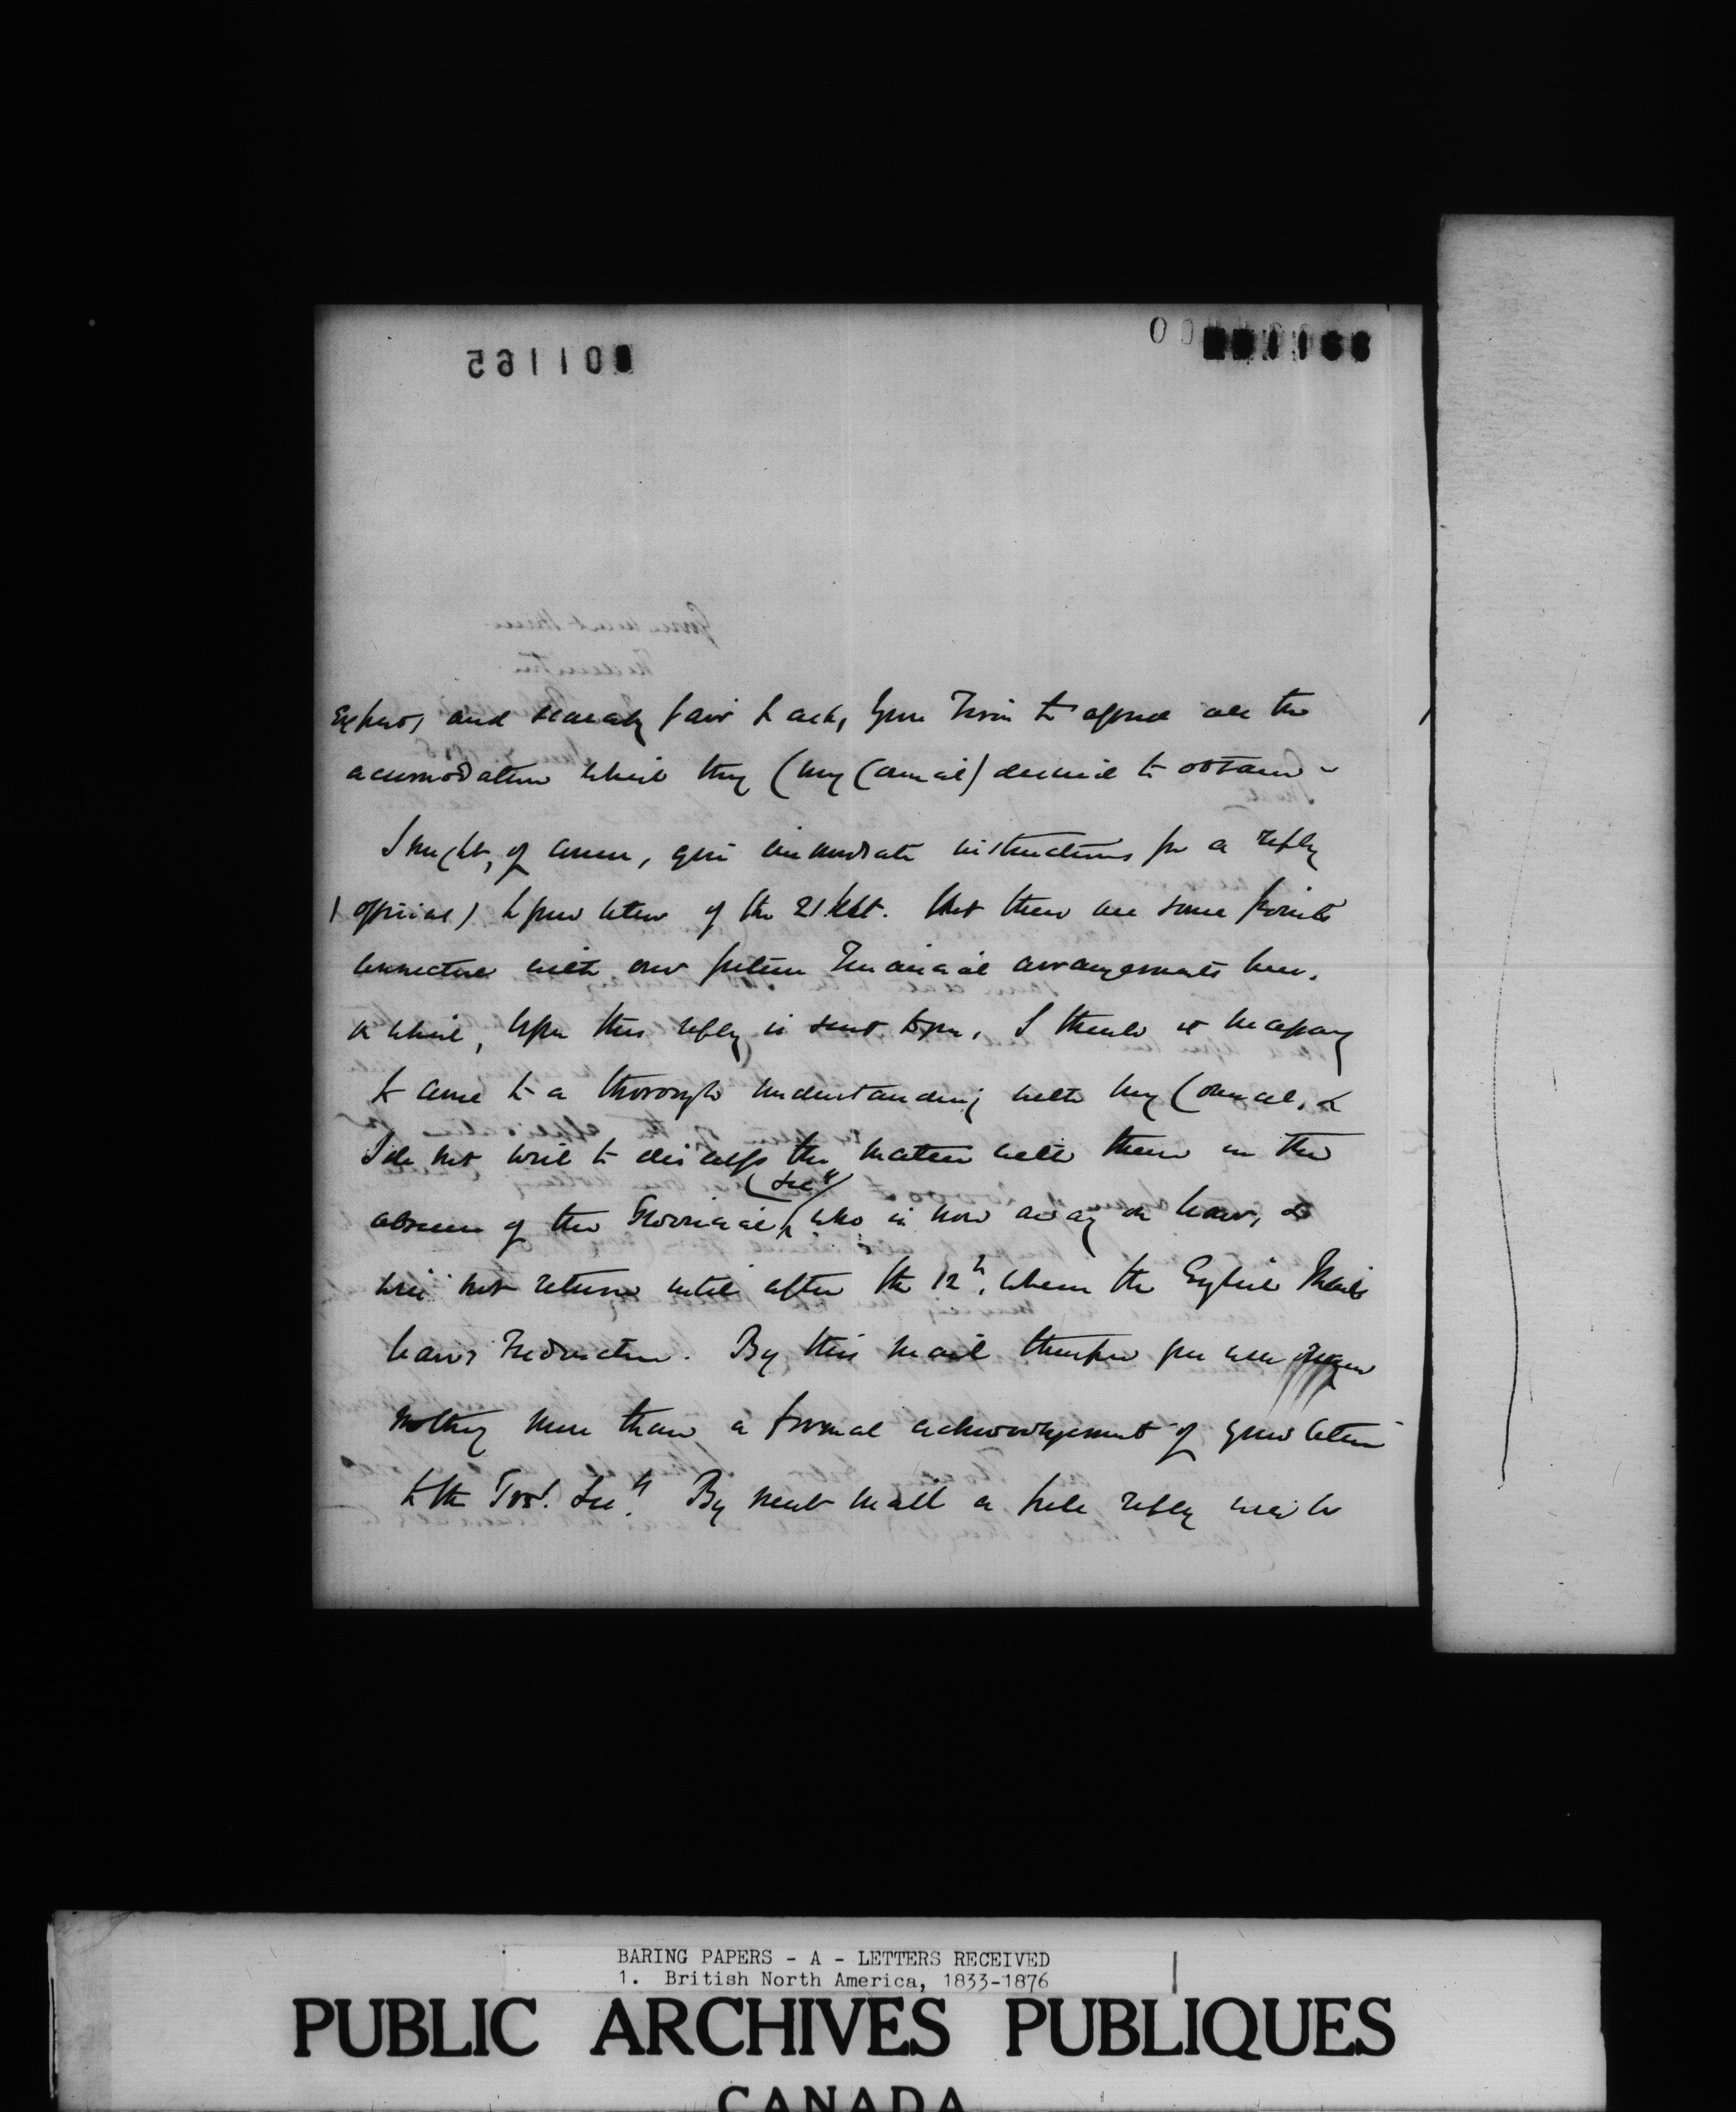 001166
expect, and scarcely fair to ask, your Firm to afford all the
accomodation which they (my Council) desired to obtain -
I might, of course, give immediate instructions for a reply
(official) to your letter of the 21st. But there are some points
connected with our future Financial arrangements here,
on which, before this reply is sent to you, I think it necessary
to come to a thorough understanding with my Council, &
I do not wish to discuss the matter with them in the
absence of the Provincial (Secy) who is now away on leave, &
will not return until after the 12th, when the English Mail
leaves Fredericton. By this mail therefore you will
nothing more than a formal acknowledgement of your letter
to the Prov. Secy. By next mail a full reply will be
BARING PAPERS - A - LETTERS RECEIVED
1. British North America, 1833-1876
PUBLIC ARCHIVES PUBLIQUES
CANADA